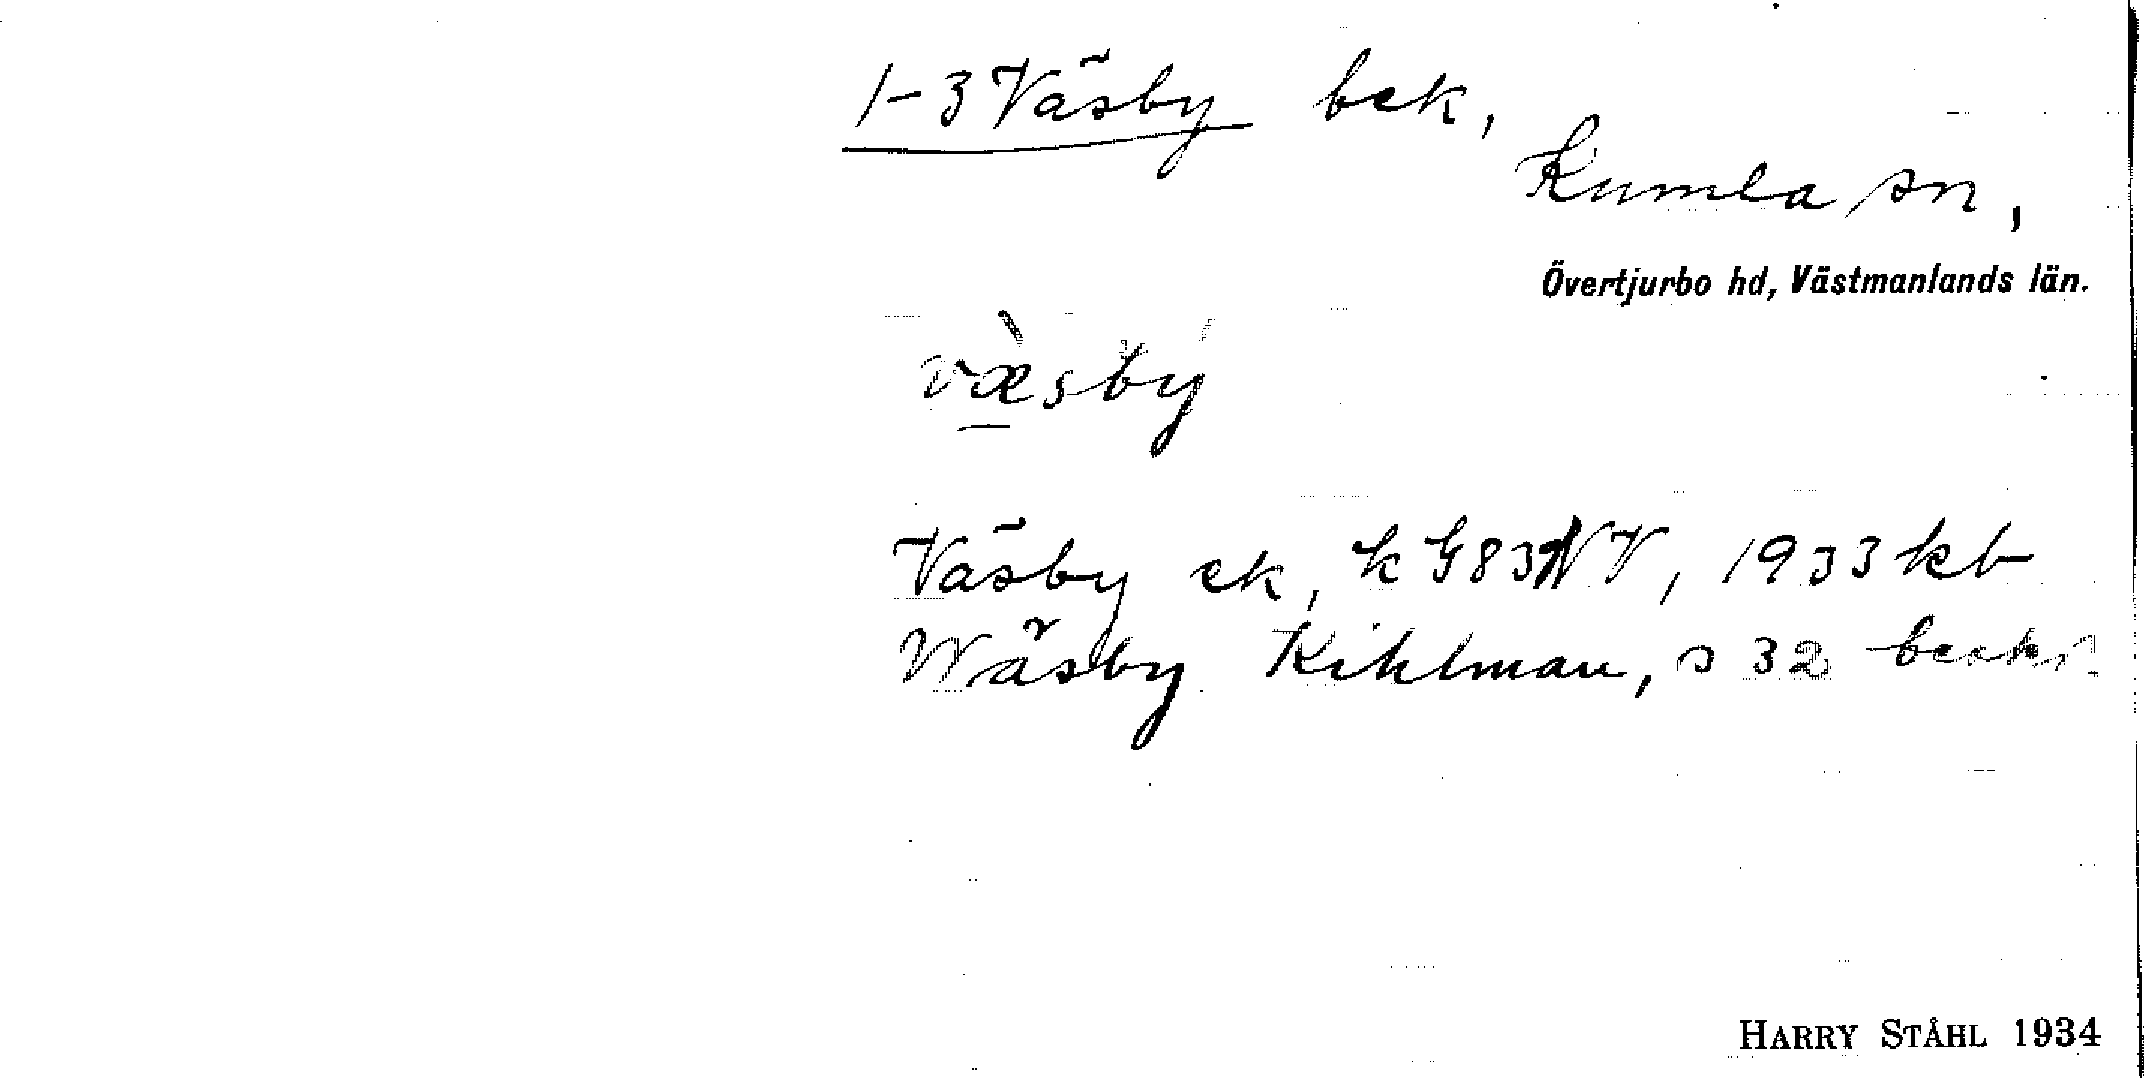 1-3 Väsby bek,
Kumla sn,
Övertjurbo hd, Västmanlands län.
væ̀sbý
Väsby ek, k G83NV, 1933 kb
Wäsby Kihlman, s 32 beskr
HARRY STÅHL 1934